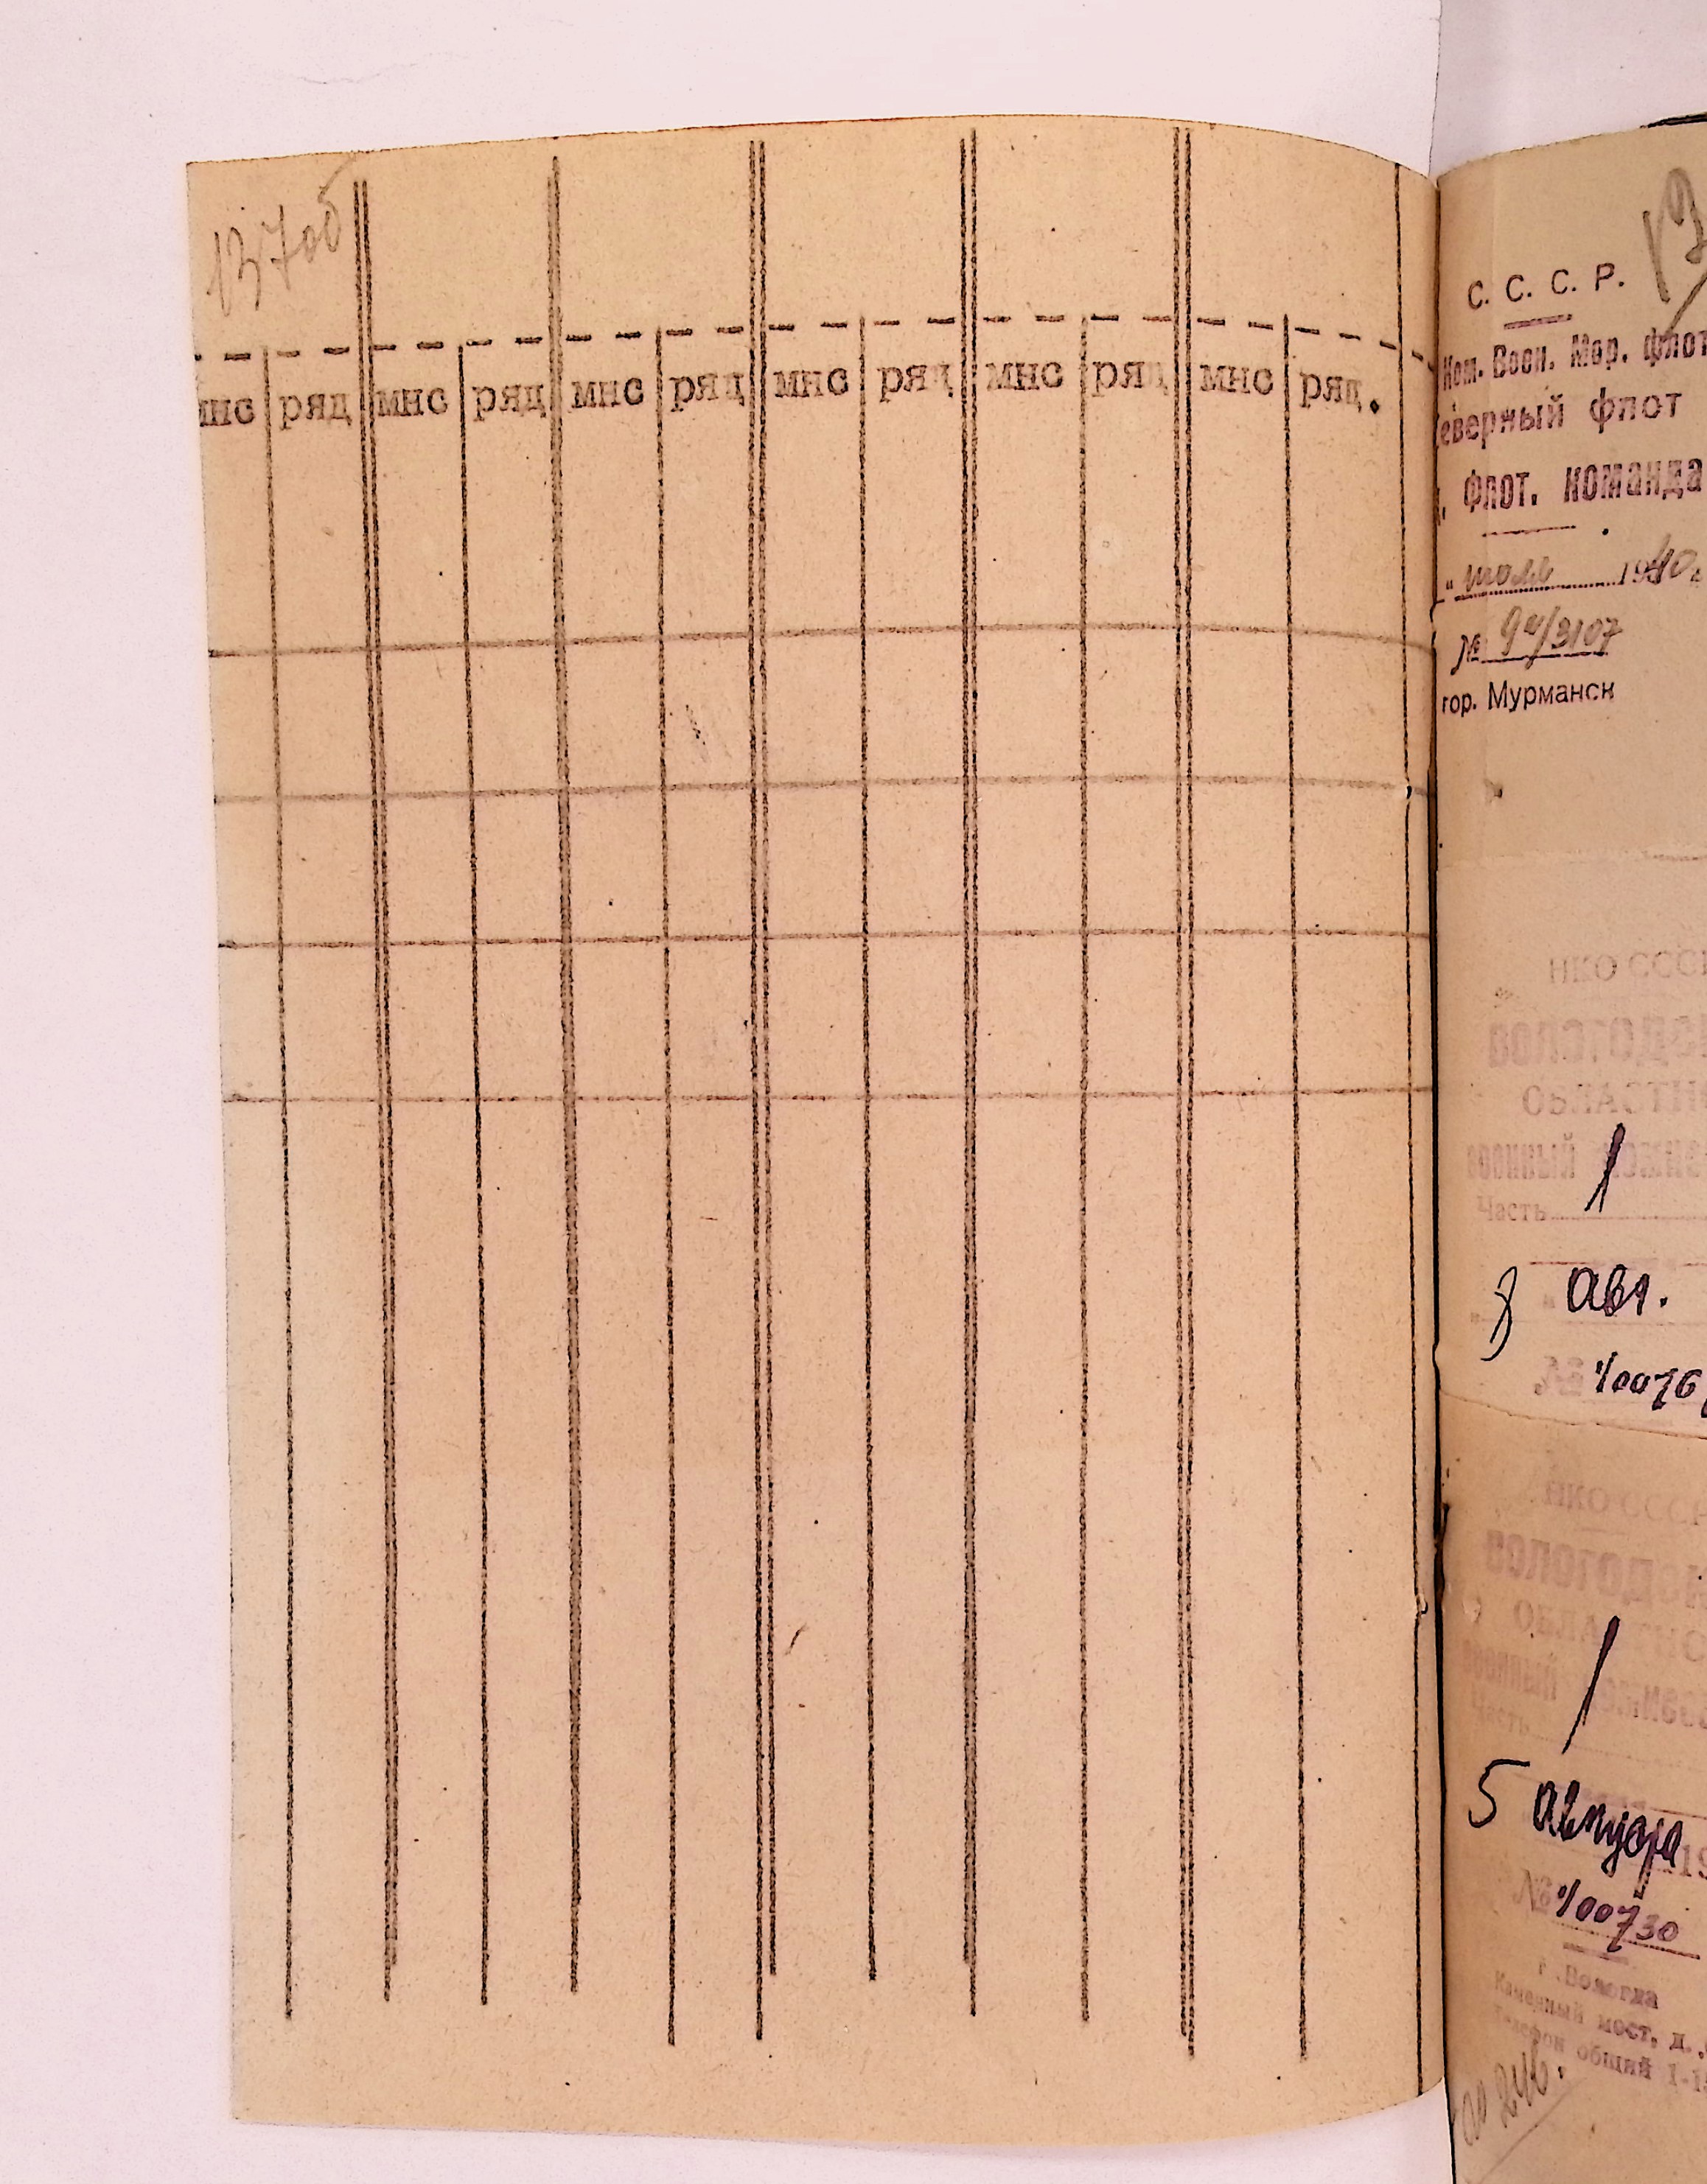 137об
мнс ряд мнс ряд мнс ряд мнс ряд мнс ряд мнс ряд.
С. С. С. Р.
Ком. Воен. Мор. флот
еверный флот
флот. команда
" июля 1940г
№ 9и/3107
гор. Мурманск
НКО СССР
ВОЛОГОДС
ОБЛАСТН
военный
Часть
8 " Авг.
№ 1/0076
НКО СССР
ВОЛОГОД
ОБЛАСТНО
военный комисса
Часть
5 августа 19
№ 1/00730
г. Вологда
Каменный мост, д.,
Телефон общий 1-1